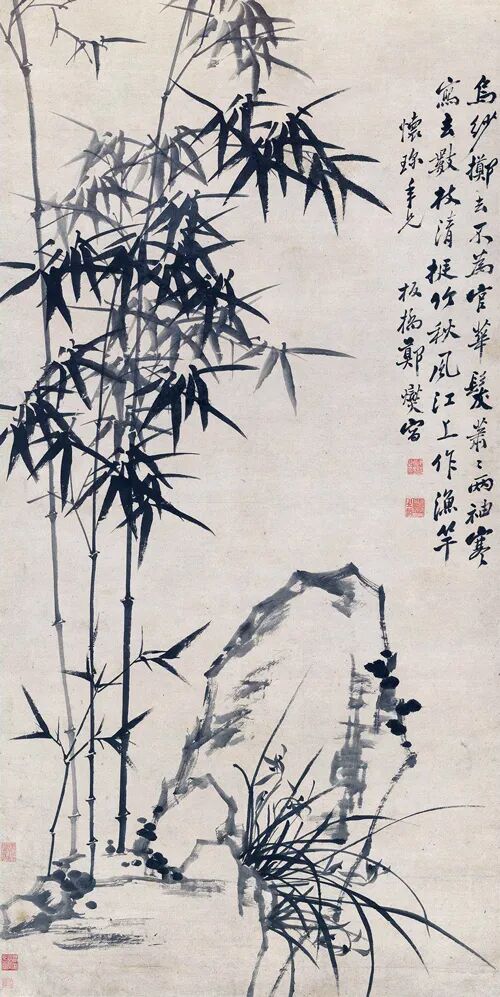 烏紗擲去不為官華髮蕭々兩袖寒
寫去數枝清挺竹秋風江上作漁竿
懷年兄
板橋鄭燮寫